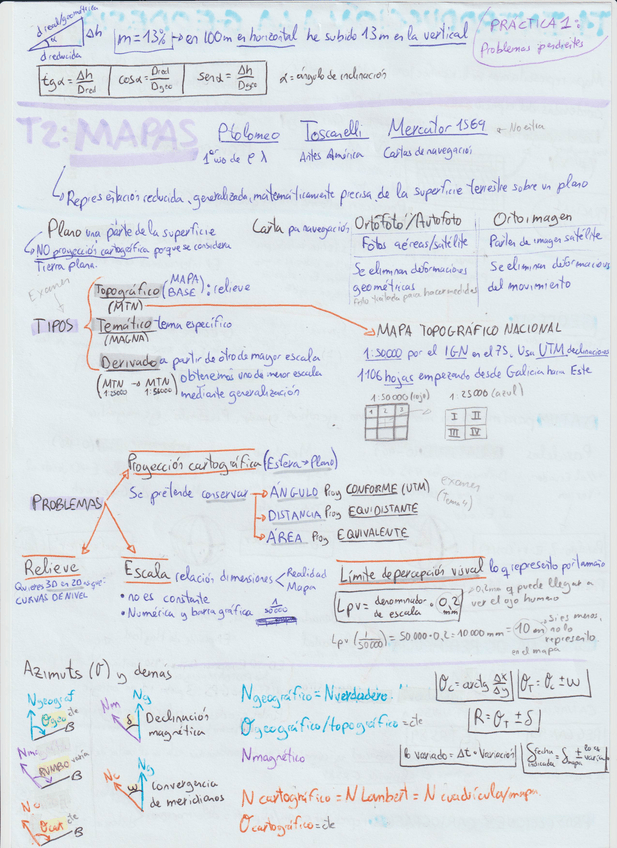 d real/geométrica
Δh
α
d reducida
m = 13% → en 100 m en horizontal he subido 13 m en la vertical
PRÁCTICA 1:
Problemas pendientes
tg α = Δh / Dred
cos α = Dred / Dgeo
sen α = Δh / Dgeo
α = ángulo de inclinación
T2: MAPAS
Ptolomeo
Toscanelli
Mercator 1569
No entra
1er uso de φ λ
Antes América
Cartas de navegación
Representación reducida, generalizada, matemáticamente precisa, de la superficie terrestre sobre un plano
Plano una parte de la superficie
NO proyección cartográfica porque se considera
Tierra plana.
Carta para navegación
Ortofoto/Autofoto
Fotos aéreas/satélite
Se eliminan deformaciones
geométricas
Foto tratada para hacer medidas
Ortoimagen
Parten de imagen satélite
Se eliminan deformaciones
del movimiento
Examen
TIPOS
Topográfico (MAPA BASE): relieve
(MTN)
Temático tema específico
(MAGNA)
Derivado a partir de otro de mayor escala
(MTN 1:25000 → MTN 1:50000) obtenemos uno de menor escala
mediante generalización
MAPA TOPOGRÁFICO NACIONAL
1:50000 por el IGN en el 75. Usa UTM declinaciones
1106 hojas empezando desde Galicia hacia Este
1:50000 (rojo)
1:25000 (azul)
1 2 3
I II
III IV
PROBLEMAS
Proyección cartográfica (Esfera → Plano)
Se pretende conservar
ÁNGULO Proy CONFORME (UTM)
DISTANCIA Proy EQUIDISTANTE
ÁREA Proy EQUIVALENTE
examen
(Tema 4)
Relieve
Quieres 3D en 2D
CURVAS DE NIVEL
Escala relación dimensiones < Realidad
Mapa
• no es constante
• Numérica y barra gráfica 1/50000
Límite de percepción visual lo q represento por tamaño
Lpv = denominador de escala · 0,2 mm
0,2 mm q puede llegar a
ver el ojo humano
Lpv (1/50000) = 50.000 · 0,2 = 10000 mm = 10 m
Si es menos,
no lo
represento
en el mapa
Azimuts (θ) y demás
N geográf
θgeo cte
B
Nm
Ng
δ
Declinación
magnética
Nm
RUMBO varía
B
Nc
Ng
ω
Convergencia
de meridianos
Nc
θcart
B
N geográfico = N verdadero
θ geográfico/topográfico = cte
N magnético
N cartográfico = N Lambert = N cuadrícula/mapa
θ cartográfico = cte
θc = arctg Δx/Δy
θT = θc ± ω
R = θT ± δ
lo variado = Δt · variación
δ fecha indicada = δ mapa ±